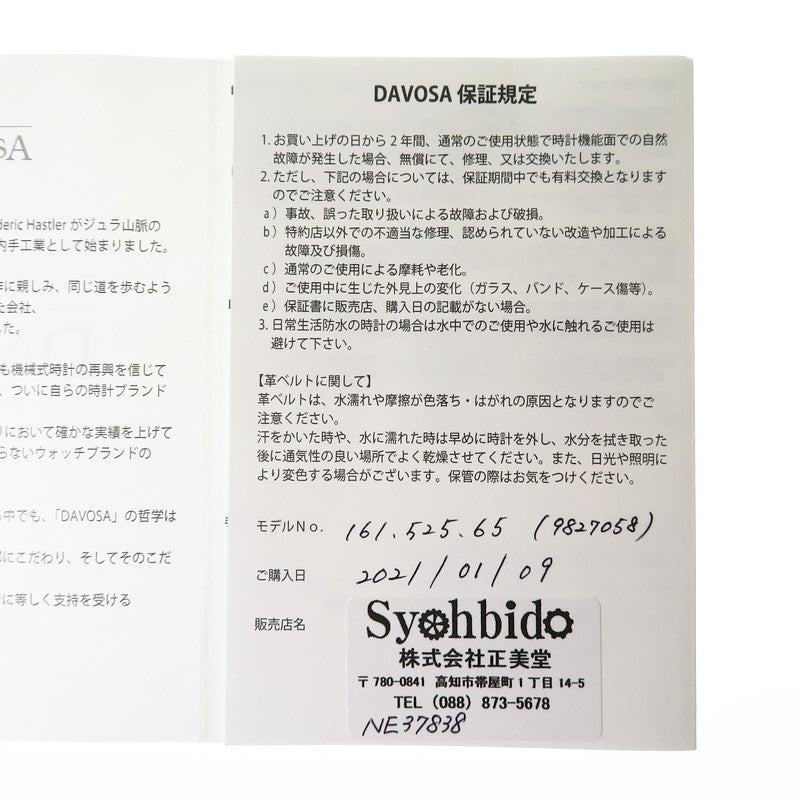 SA
deric Hastler がジュラ山脈の
内手工業として始まりました。
に親しみ、同じ道を歩むよう
た会社、
した。
も機械式時計の再興を信じて
、ついに自らの時計ブランド
において確かな実績を上げて
らないウォッチブランドの
中でも、「DAVOSA」の哲学は
にこだわり、そしてそのこだ
に等しく支持を受ける
DAVOSA 保証規定
1. お買い上げの日から 2 年間、通常のご使用状態で時計機能面での自然
故障が発生した場合、無償にて、修理、又は交換いたします。
2. ただし、下記の場合については、保証期間中でも有料交換となります
のでご注意ください。
a ）事故、誤った取り扱いによる故障および破損。
b ）特約店以外での不適当な修理、認められていない改造や加工による
故障及び損傷。
c ）通常のご使用による摩耗や老化。
d ）ご使用中に生じた外見上の変化（ガラス、バンド、ケース傷等）。
e ）保証書に販売店、購入日の記載がない場合。
3. 日常生活防水の時計の場合は水中でのご使用や水に触れるご使用は
避けて下さい。
【革ベルトに関して】
革ベルトは、水濡れや摩擦が色落ち・はがれの原因となりますのでご
注意ください。
汗をかいた時や、水に濡れた時は早めに時計を外し、水分を拭き取った
後に通気性の良い場所でよく乾燥させてください。また、日光や照明に
より変色する場合がございます。保管の際はお気をつけください。
モデルＮｏ． 161.525.65 (9827058)
ご購入日 2021/01/09
販売店名 Syohbido
株式会社正美堂
〒 780-0841 高知市帯屋町 1 丁目 14-5
TEL (088) 873-5678
NE37838